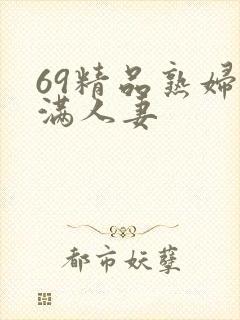 69精品熟婦
满人妻
都市妖孽